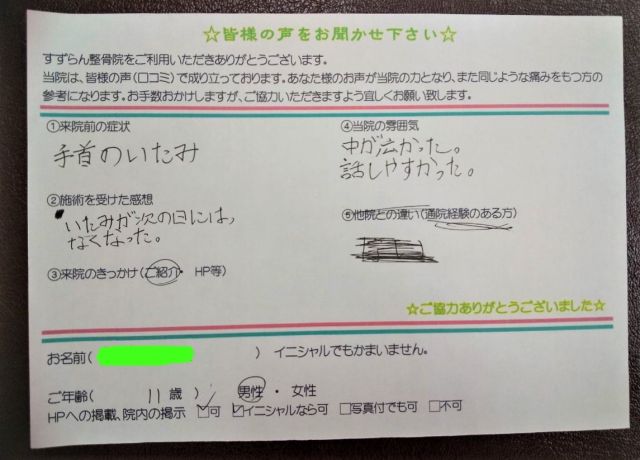 ☆皆様の声をお聞かせ下さい☆
すずらん整骨院をご利用いただきありがとうございます。
当院は、皆様の声(口コミ)で成り立っております。あなた様のお声が当院の力となり、また同じような痛みをもつ方の
参考になります。お手数おかけしますが、ご協力いただきますよう宜しくお願い致します。
①来院前の症状
手首のいたみ
②施術を受けた感想
いたみが次の日には、
なくなった。
③来院のきっかけ(ご紹介・HP等)
④当院の雰囲気
中が広かった。
話しやすかった。
⑤他院との違い(通院経験のある方)
☆ご協力ありがとうございました☆
お名前( ) イニシャルでもかまいません。
ご年齢( 11歳) 男性・女性
HPへの掲載、院内の掲示 ☑可 ☑イニシャルなら可 □写真付でも可 □不可